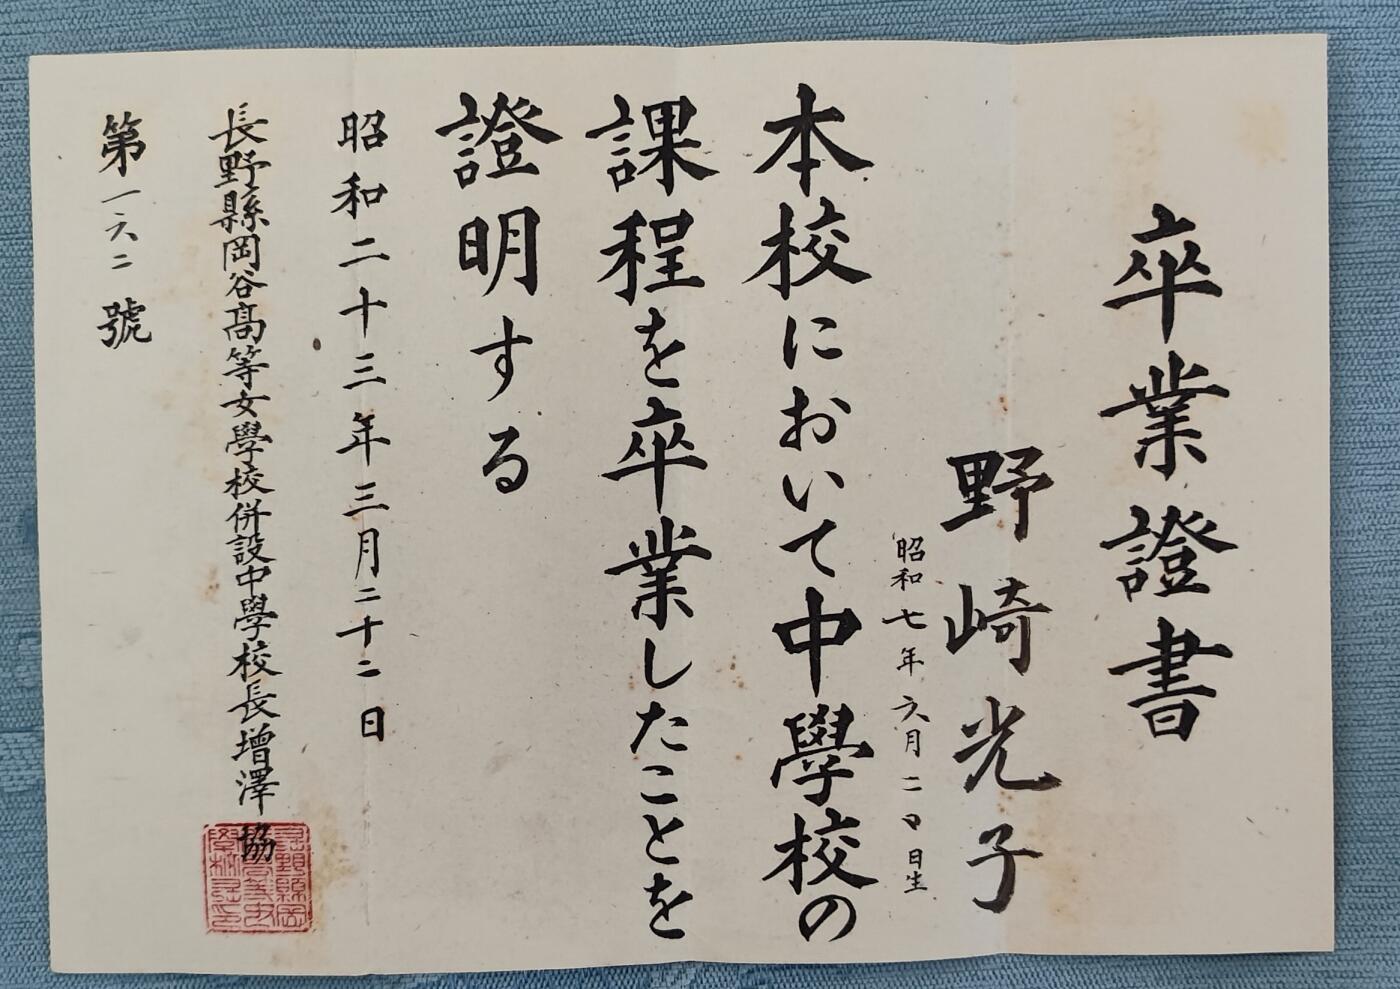 卒業證書
野崎光子
昭和七年六月二日生
本校において中學校の
課程を卒業したことを
證明する
昭和二十三年三月二十二日
長野縣岡谷高等女學校併設中學校長增澤協
第一六二號